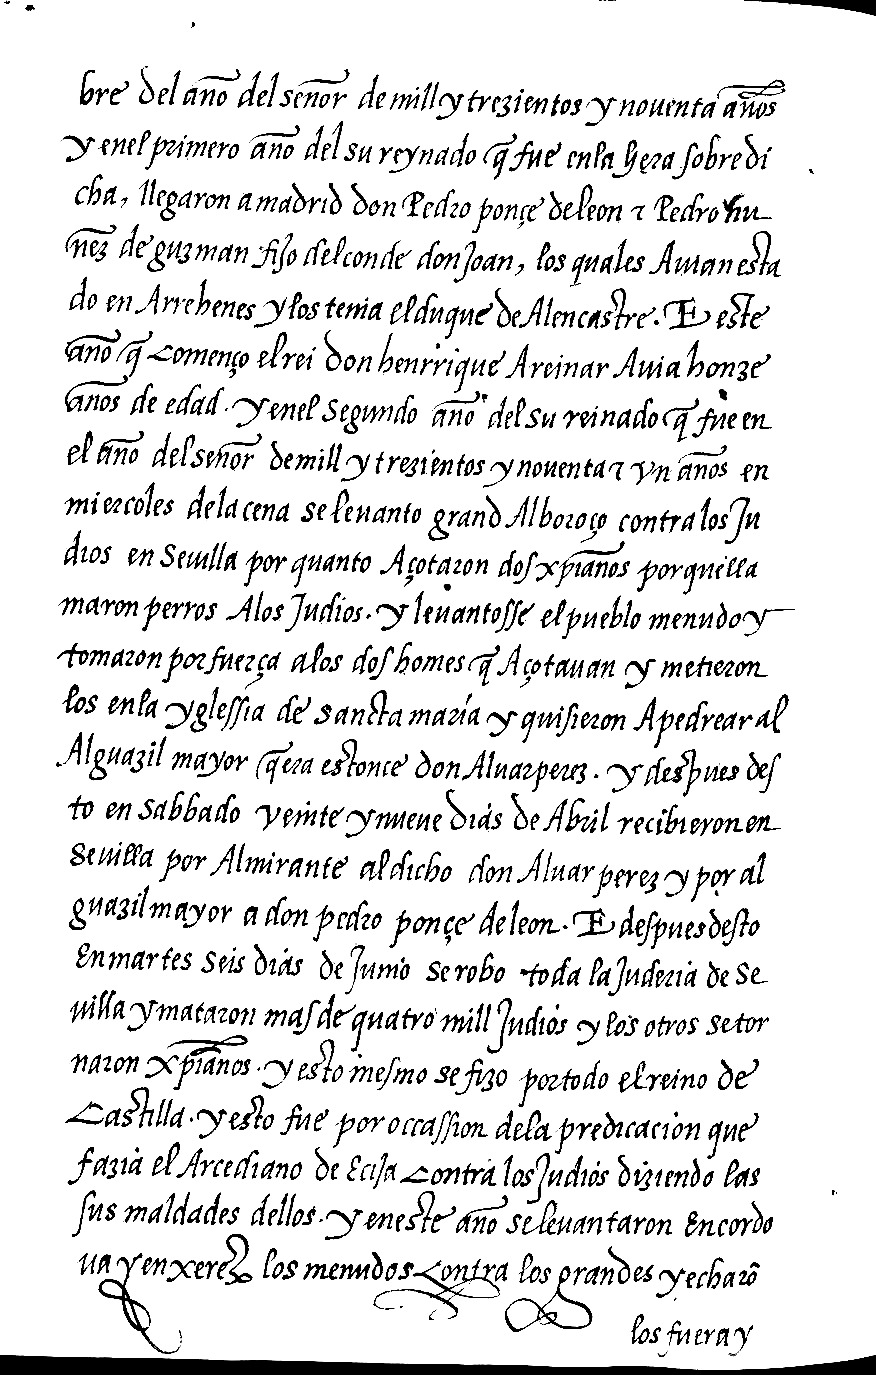 bre del año del señor de mill y trezientos y nouenta años
y enel primero año del su reynado q̃ fue enla hera sobredi
cha, llegaron a madrid don Pedro ponçe deleon ⁊ Pedro nu
ñez de guzman fijo del conde don Joan, los quales Auian esta
do en Arrehenes y los tenia el duque de Alencastre. E este
año q̃ Començo el rei don henrrique A reinar Auia honze
años de edad. y enel segundo año del su reinado q̃ fue en
el año del señor de mill y trezientos y nouenta ⁊ vn años en
miercoles dela cena se leuanto grand Alboroço contra los Ju
dios en Seuilla por quanto Açotaron dos xp̃ianos porque lla
maron perros Alos Judios. y leuantosse el pueblo menudo y
tomaron por fuerça alos dos homes q̃ Açotauan y metieron
los enla yglessia de sancta maría y quisieron Apedrear al
Alguazil mayor q̃ era estonce don Aluarperez. y despues des
to en sabbado veinte y nueue dias de Abril recibieron en
Seuilla por Almirante al dicho don Aluar perez y por al
guazil mayor a don pedro ponçe deleon. E despues desto
En martes seis dias de Junio se robo toda la Juderia de Se
uilla y mataron mas de quatro mill Judios y los otros se tor
naron xp̃ianos. y esto mesmo se fizo por todo el reino de
Castilla. y esto fue por occassion dela predicacion que
fazia el Arcediano de Ecija Contra los Judios diziendo las
sus maldades dellos. y eneste año se leuantaron En cordo
ua y en xerez los menudos Contra los grandes y echarõ
los fuera y